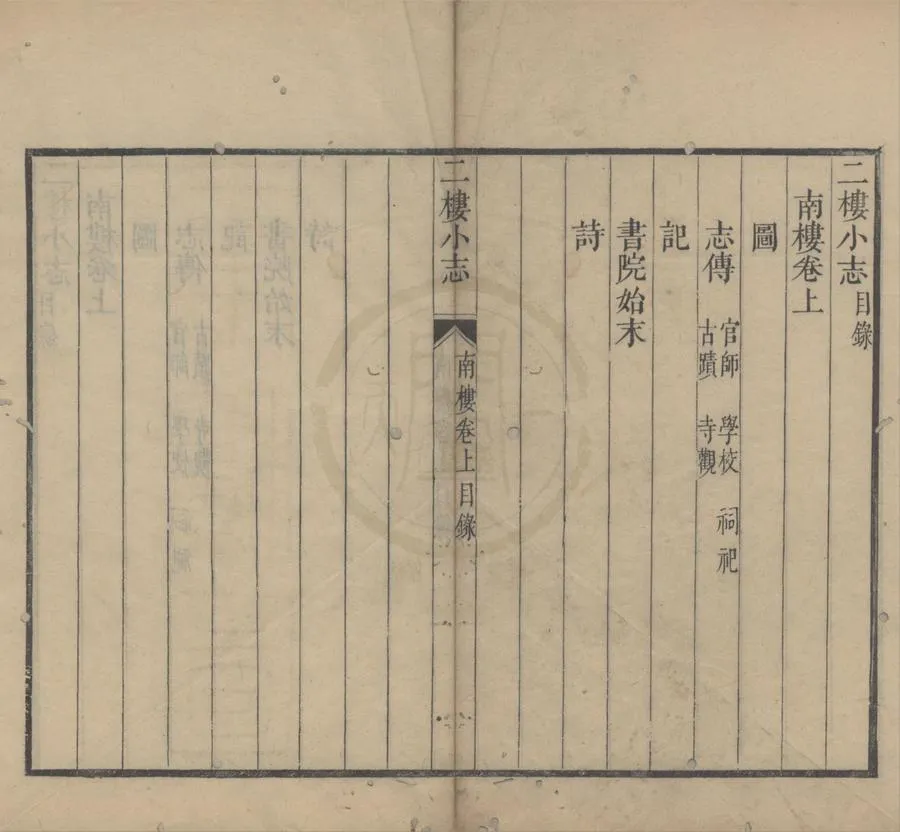 二樓小志目錄
南樓卷上
圖
志傳 官師 學校 祠祀
古蹟 寺觀
記
書院始末
詩
二樓小志 南樓卷上目錄